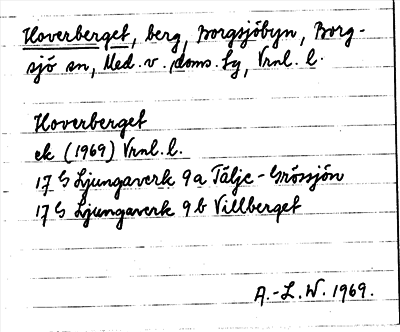 Hoverberget, berg, Borgsjöbyn, Borg-
sjö sn, Med. v. doms. Lg, Vrnl. l.
Hoverberget
ek (1969) Vrnl. l.
17 G Ljungaverk 9a Tälje - Grössjön
17 G Ljungaverk 9b Villberget
A.-L. W. 1969.